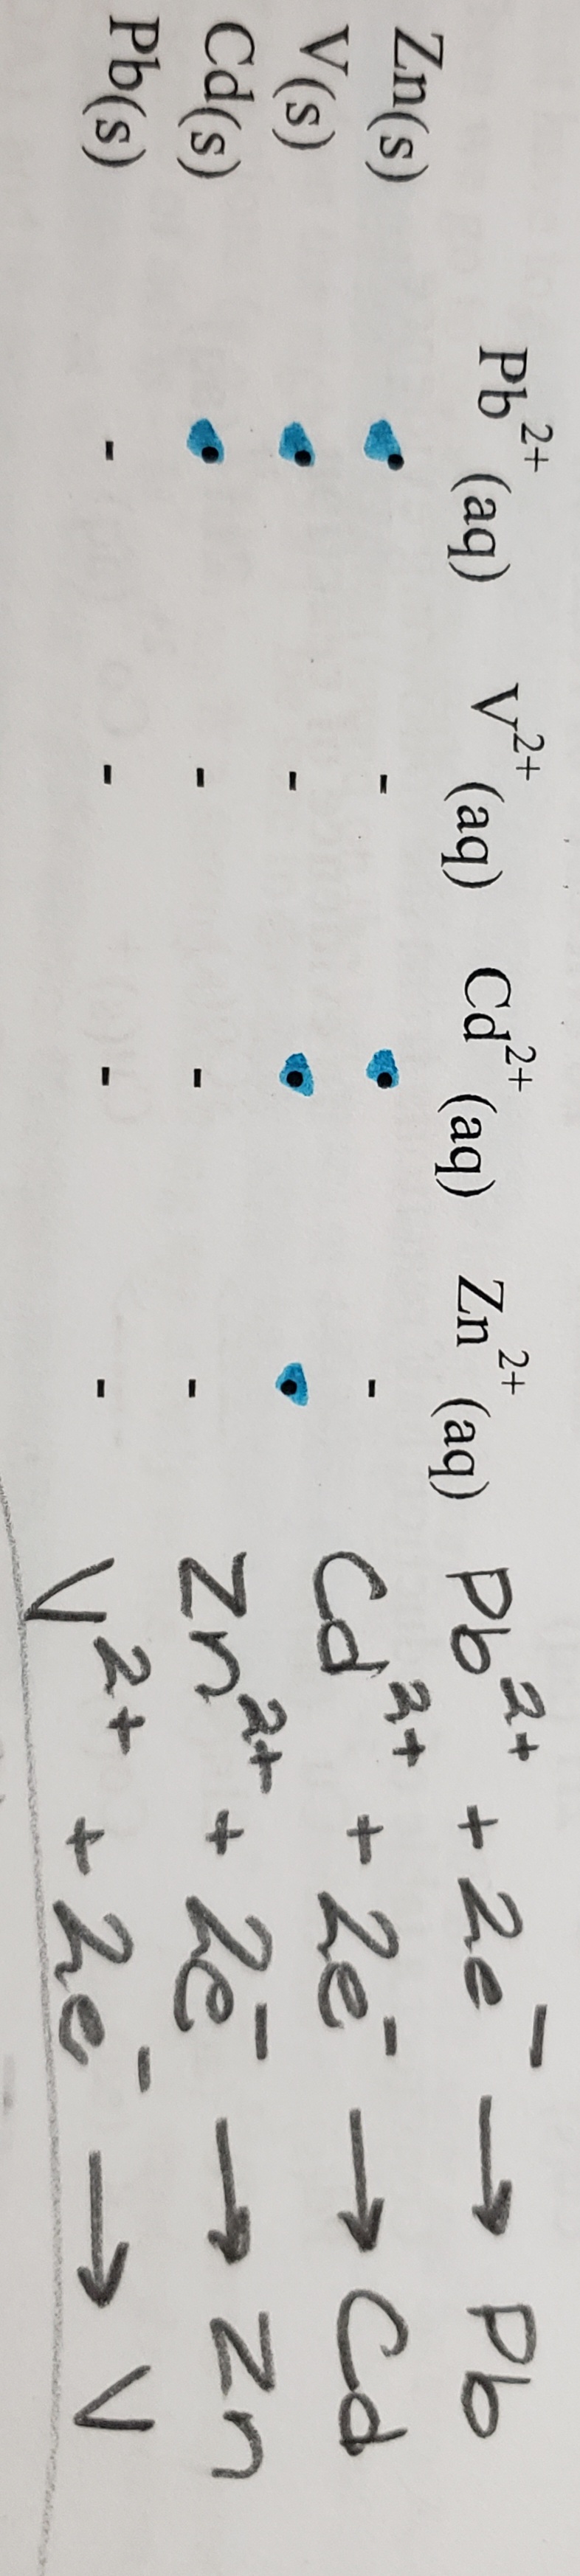 Pb²⁺(aq) V²⁺(aq) Cd²⁺(aq) Zn²⁺(aq)
Zn(s) • - • -
V(s) • - • •
Cd(s) • - - -
Pb(s) - - - -
Pb²⁺ + 2e⁻ → Pb
Cd²⁺ + 2e⁻ → Cd
Zn²⁺ + 2e⁻ → Zn
V²⁺ + 2e⁻ → V